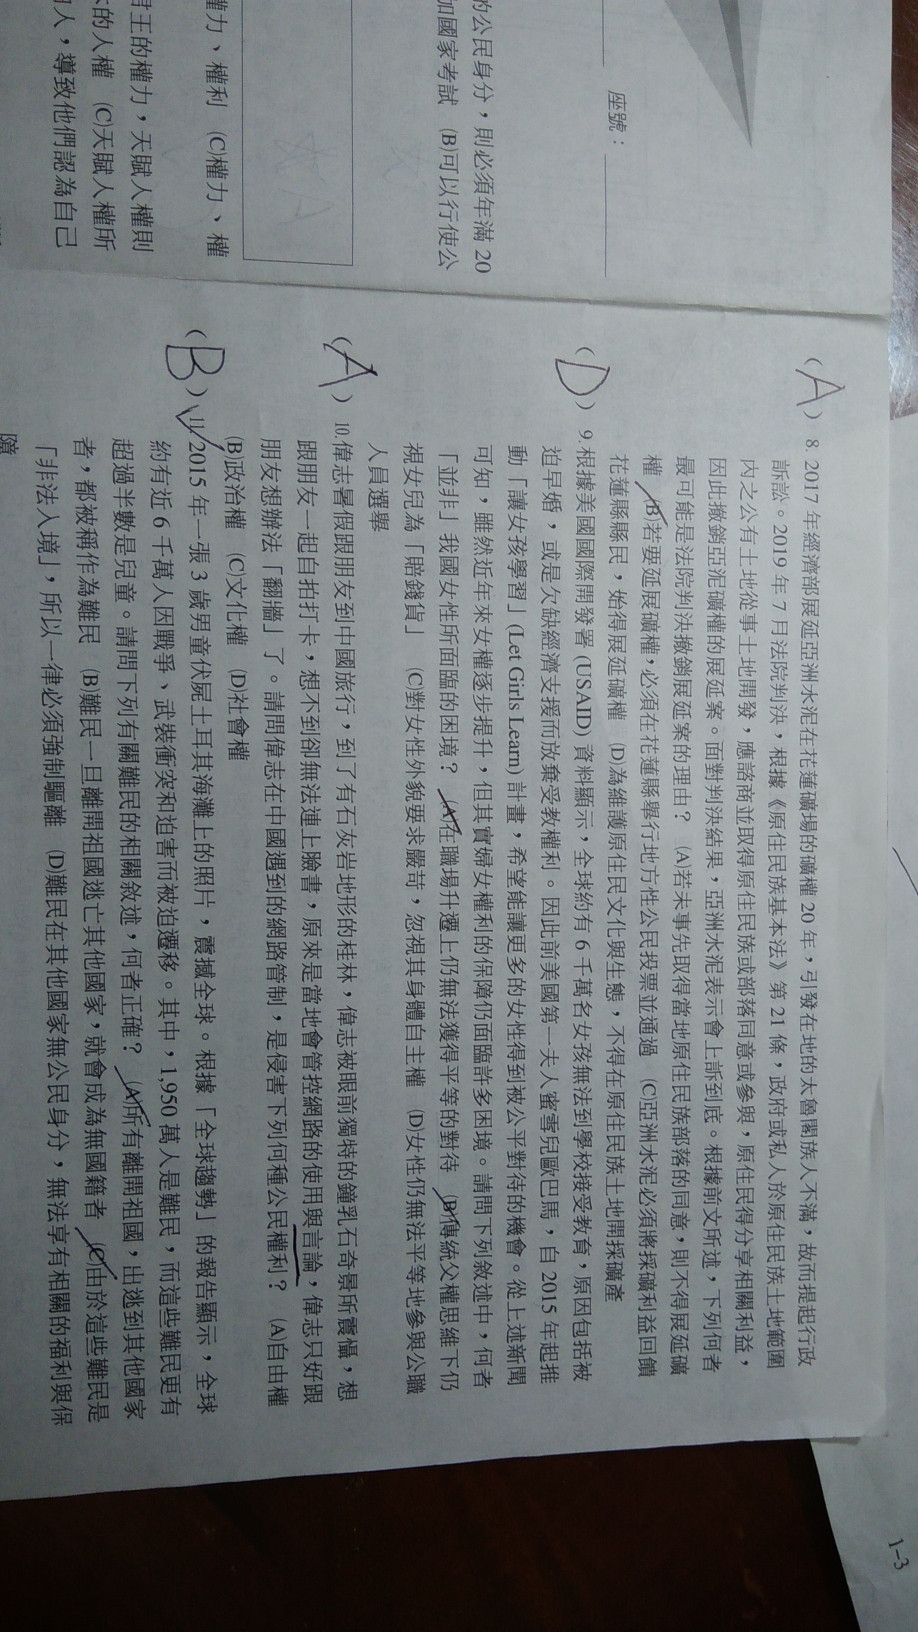 座號：
的公民身分，則必須年滿 20
加國家考試 (B)可以行使公
權力、權利 (C)權力、權
君王的權力，天賦人權則
的人權 (C)天賦人權所
人，導致他們認為自己
(A) 8. 2017 年經濟部展延亞洲水泥在花蓮礦場的礦權 20 年，引發在地的太魯閣族人不滿，故而提起行政
訴訟。2019 年 7 月法院判決，根據《原住民族基本法》第 21 條，政府或私人於原住民族土地範圍
內之公有土地從事土地開發，應諮商並取得原住民族或部落同意或參與，原住民得分享相關利益，
因此撤銷亞泥礦權的展延案。面對判決結果，亞洲水泥表示會上訴到底。根據前文所述，下列何者
最可能是法院判決撤銷展延案的理由？ (A)若未事先取得當地原住民族部落的同意，則不得展延礦
權 (B)若要延展礦權，必須在花蓮縣舉行地方性公民投票並通過 (C)亞洲水泥必須將採礦利益回饋
花蓮縣縣民，始得展延礦權 (D)為維護原住民文化與生態，不得在原住民族土地開採礦產
(D) 9. 根據美國國際開發署 (USAID) 資料顯示，全球約有 6 千萬名女孩無法到學校接受教育，原因包括被
迫早婚，或是欠缺經濟支援而放棄受教權利。因此前美國第一夫人蜜雪兒歐巴馬，自 2015 年起推
動「讓女孩學習」(Let Girls Learn) 計畫，希望能讓更多的女性得到被公平對待的機會。從上述新聞
可知，雖然近年來女權逐步提升，但其實婦女權利的保障仍面臨許多困境。請問下列敘述中，何者
「並非」我國女性所面臨的困境？ (A)在職場升遷上仍無法獲得平等的對待 (B)傳統父權思維下仍
視女兒為「賠錢貨」 (C)對女性外貌要求嚴苛，忽視其身體自主權 (D)女性仍無法平等地參與公職
人員選舉
(A) 10. 偉志暑假跟朋友到中國旅行，到了有石灰岩地形的桂林，偉志被眼前獨特的鐘乳石奇景所震懾，想
跟朋友一起自拍打卡，想不到卻無法連上臉書，原來是當地會管控網路的使用與言論，偉志只好跟
朋友想辦法「翻牆」了。請問偉志在中國遇到的網路管制，是侵害下列何種公民權利？ (A)自由權
(B)政治權 (C)文化權 (D)社會權
(B) 11. 2015 年一張 3 歲男童伏屍土耳其海灘上的照片，震撼全球。根據「全球趨勢」的報告顯示，全球
約有近 6 千萬人因戰爭、武裝衝突和迫害而被迫遷移。其中，1,950 萬人是難民，而這些難民更有
超過半數是兒童。請問下列有關難民的相關敘述，何者正確？ (A)所有離開祖國，出逃到其他國家
者，都被稱作為難民 (B)難民一旦離開祖國逃亡其他國家，就會成為無國籍者 (C)由於這些難民是
「非法入境」，所以一律必須強制驅離 (D)難民在其他國家無公民身分，無法享有相關的福利與保
障
1-3